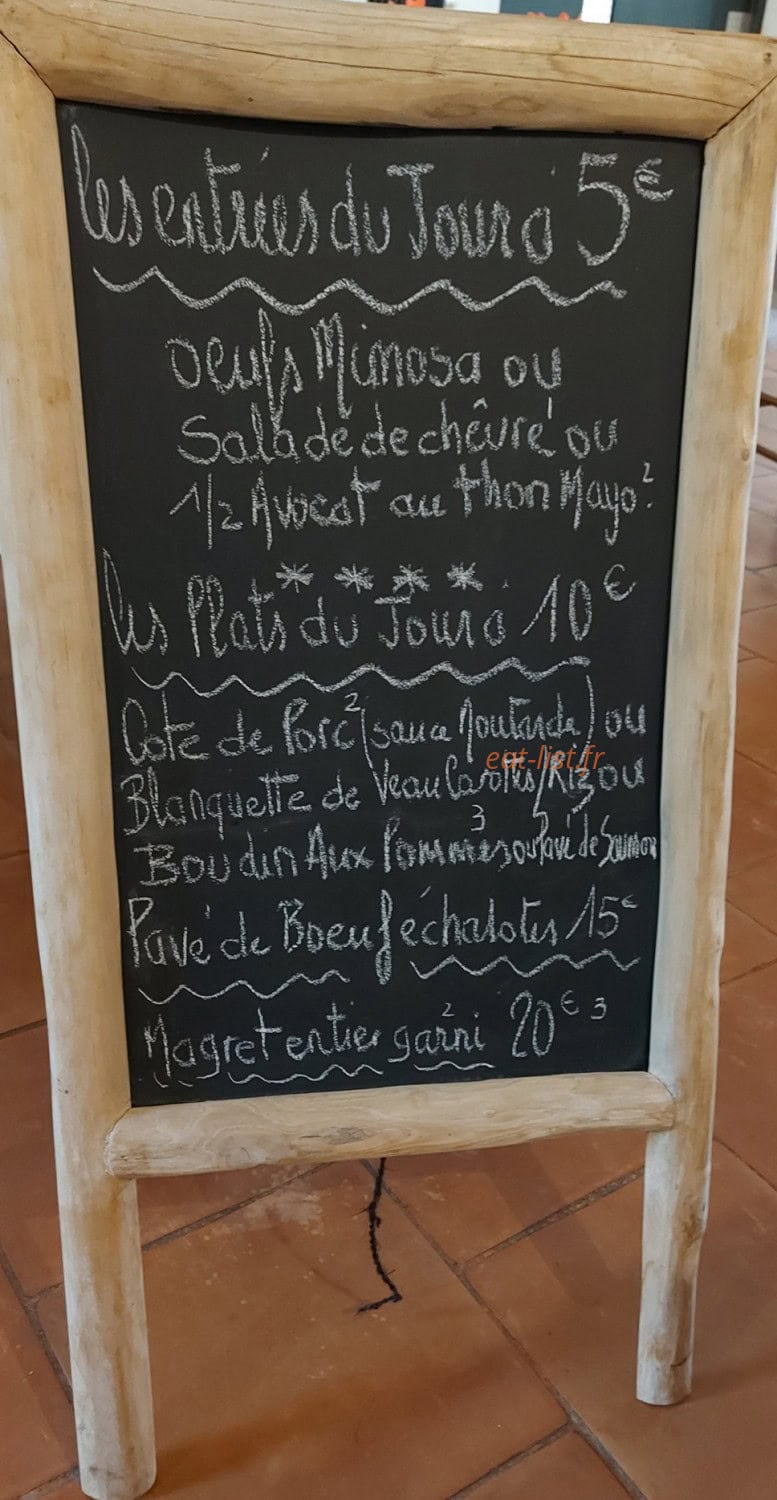 les entrées du Jour à 5€
oeufs Mimosa ou
Salade de chêvre ou
1/2 Avocat au thon Mayo 2
* * * *
les Plats du Jour à 10€
Cote de Porc 2 (sauce Moutarde) ou
eat-list.fr
Blanquette de Veau Carottes/Riz ou
Boudin Aux Pommes 3 ou Pavé de Saumon
Pavé de Boeuf échalotes 15€
Magret entier garni 2 20€ 3